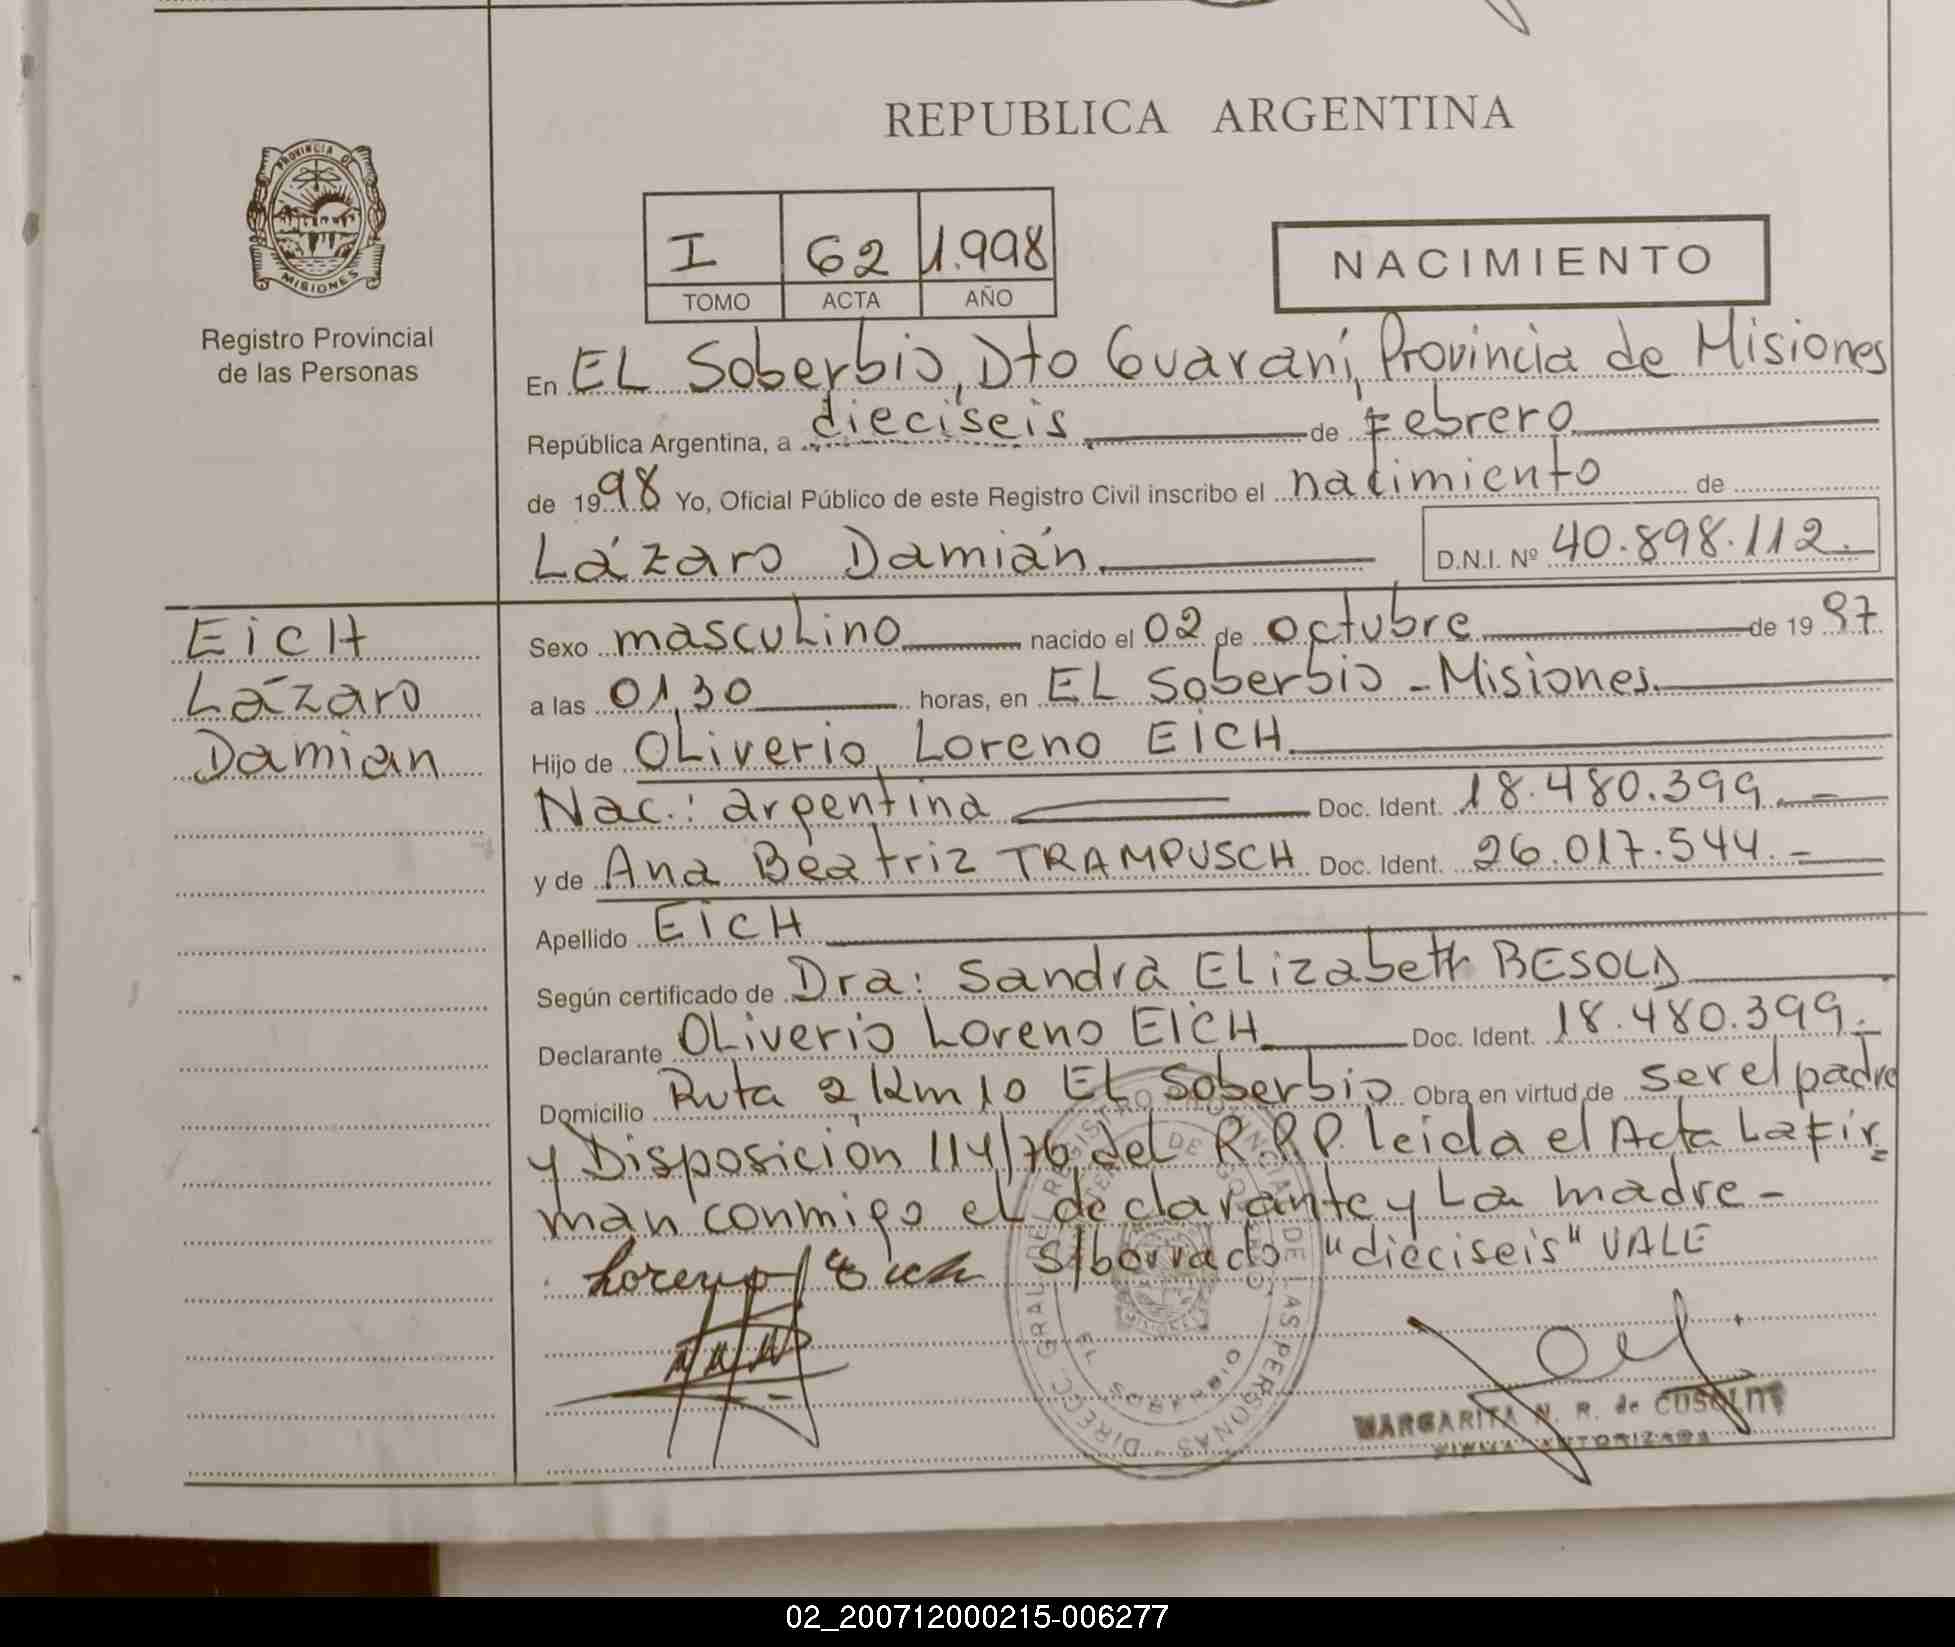 REPUBLICA ARGENTINA
PROVINCIA DE
MISIONES
Registro Provincial
de las Personas
I 62 1.998
TOMO ACTA AÑO
NACIMIENTO
En EL Soberbio, Dto Guaraní, Provincia de Misiones
República Argentina, a dieciseis de Febrero
de 1998 Yo, Oficial Público de este Registro Civil inscribo el nacimiento de
Lázaro Damián
D.N.I. Nº 40.898.112.
EICH
Lázaro
Damian
Sexo masculino nacido el 02 de octubre de 1997
a las 01,30 horas, en EL Soberbio - Misiones.
Hijo de OLiverio Loreno EICH
Nac.: argentina Doc. Ident. 18.480.399.-
y de Ana Beatriz TRAMPUSCH Doc. Ident. 26.017.544.-
Apellido EICH
Según certificado de Dra: Sandra ELizabeth BESOLD
Declarante OLiverio Loreno EICH Doc. Ident. 18.480.399.-
Domicilio Ruta 2 Km 10 EL Soberbio Obra en virtud de ser el padre
y Disposición 114/76 del R.P.P. leida el Acta La fir=
man conmigo el declarante y La madre -
Loreno Eich S/borrado "dieciseis" VALE
DIRECC. GRAL. DEL REGISTRO PROVINCIAL DE LAS PERSONAS
EL SOBERBIO
MARGARITA N. R. de
FIRMA AUTORIZADA
02_200712000215-006277